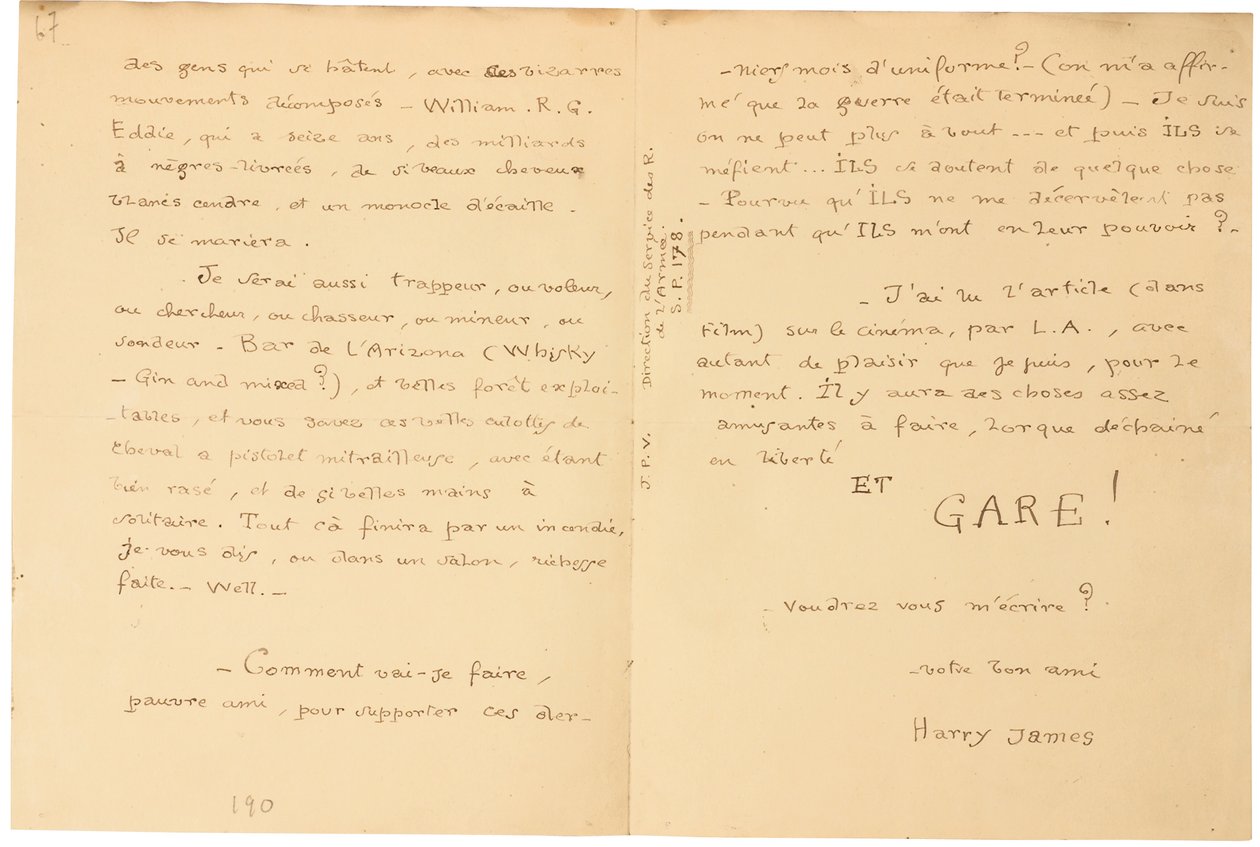 67
des gens qui se hâtent, avec des bizarres
mouvements décomposés – William. R. G.
Eddie, qui a seize ans, des milliards
à nègres-livrées, de si beaux cheveux
blancs cendre, et un monocle d'écaille.
Il se mariera.
Je serai aussi trappeur, ou voleur,
ou chercheur, ou chasseur, ou mineur, ou
sondeur – Bar de L'Arizona (Whisky
– Gin and mixed ?), et belles forêt exploi-
-tables, et vous savez ces belles culottes de
cheval a pistolet mitrailleuse, avec étant
bien rasé, et de si belles mains à
solitaire. Tout cà finira par un incendie,
je vous dis, ou dans un salon, richesse
faite. – Well. –
– Comment vai-je faire,
pauvre ami, pour supporter ces der-
190
J. P. V. Direction du Service des R.
de L'Armée.
S. P. 178.
-niers mois d'uniforme ? – (on m'a affir-
mé que la guerre était terminéé) – Je suis
on ne peut plus à bout --- et puis ILS se
méfient ... ILS se doutent de quelque chose
– Pourvu qu'ILS ne me décervèlent pas
pendant qu'ILS m'ont en leur pouvoir ? –
– J'ai lu l'article (dans
Film) sur le cinéma, par L.A., avec
autant de plaisir que je puis, pour le
moment. Il y aura des choses assez
amusantes à faire, lorque déchainé
en liberté
ET
GARE !
– Voudrez vous m'écrire ?
– votre bon ami
Harry James